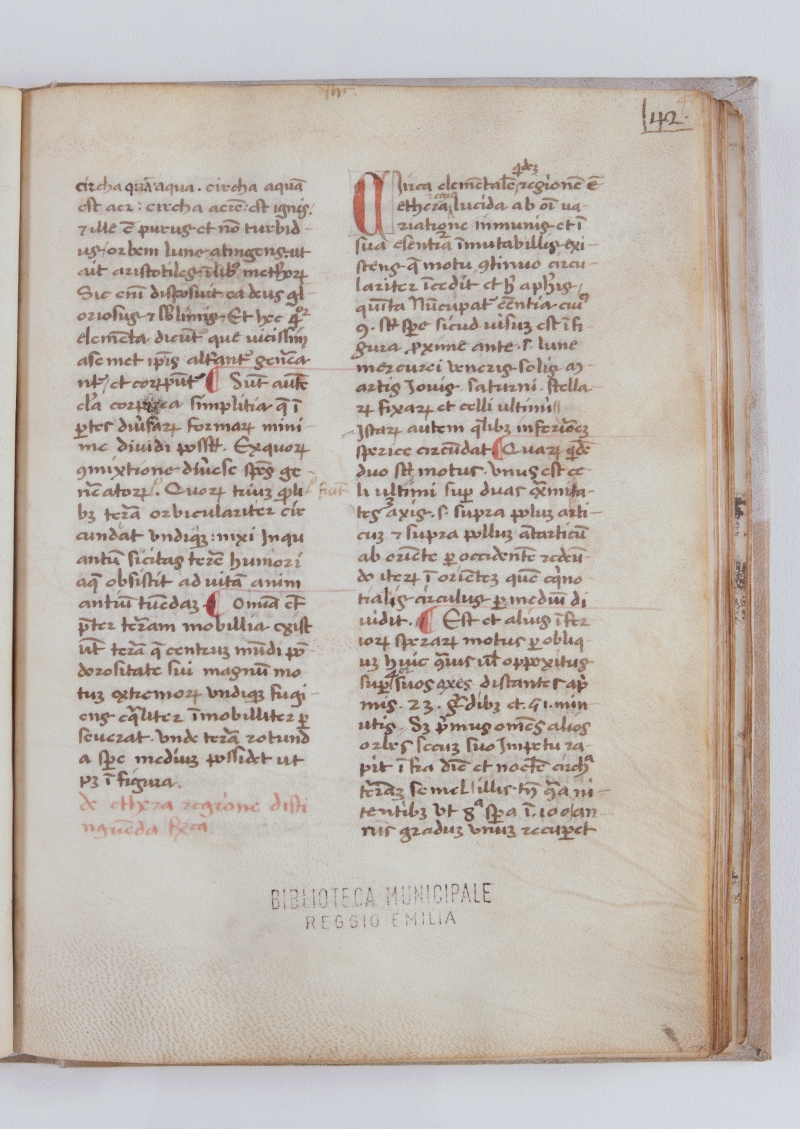 42
circha quā aqua. circha aquā
est aer: circha aerē est ignis.
⁊ ille ē purus et nō turbid-
us orbem lune atingens ut
ait aristotiles ī lib̄ metħoꝝ
Sic eni disposuit ea deus gl-
oriosus ⁊ sblimis. Et hec
elemēta dicūt que uicissim
asemet ip̄is altant genēa-
nt et corrūpūt ¶ Sūt autē
simplitia q̄ ī
ꝑtes diūsaꝝ formaꝝ mini-
me diuidi possūt. Exquoꝝ
ꝯmixtione diūese spēs ge-
nēatoꝝ. Quoꝝ triuꝫ qͥli fiūt
bꝫ terā orbiculariter cir
cundat undiqꝫ: nixi Inqu
antū sicitas terē humori
aq̄ obsistit ad uitā anim
antiū tuēdaꝫ ¶ Omīa et̄
p̄ter terāam mobillia exist
ūt terā q̄ centruꝫ mūdi pō-
dorositate sui magnū mo-
tuꝫ extremoꝝ undiqꝫ fugi-
ens eq̄liter īmobilliter ꝑ
seuerat. vnde terā rotund
a spē mediuꝫ possidet ut
pꝫ ī figura.
de ethera regione disti
nguēda
Circa elementalē qͥdeꝫ regionē ē
ethera lucida ab oī ua-
riatione inmunis et ī
sua esentia īmutabillis exi-
stens q̄ motu ꝯtinuo circu-
lariter īcedit et h̄ aphis
quīta nūcupat eēntia cuiꝰ
ꝯ. st̄ spē sicud uisuꝫ est ī fi-
gura ꝓxime ante. s. lune
mercurei ueneris solis m-
artis Jouis saturni. stella-
ꝝ fixaꝝ et celli ultimi
Jstaꝝ autem q̄libꝫ inferioreꝫ
sperice circūdat ¶ Quaꝝ qͥdē
duo st̄ motus. vnus est ce-
li ultimi sup duas ex̄mita-
tes axis. s. supra poluꝫ arti-
cuꝫ ⁊ supra polluꝫ ātarticū
ab oriēte ꝑ occidente redeū-
do iteꝝ ī orienteꝫ quē eq̄no-
tialis circulus ꝑ mediū di
uidit. ¶ Est et alius īfer
ioꝝ speraꝝ motus ꝑ obliq-
uꝫ huic
sup suos axes distantes ap̄
mis. 23. g̃dibꝫ et. 51. min
utis. Sꝫ p̄mus omēs alios
orbes secuꝫ suo Jmpetu ra-
pit īfra diē et noctē circħ
terāꝫ semel illis tn̄
tentibꝫ ut 8ᵃ spa ī. 100 an
nis graduꝫ vnuꝫ
BIBLIOTECA MUNICIPALE
REGGIO EMILIA